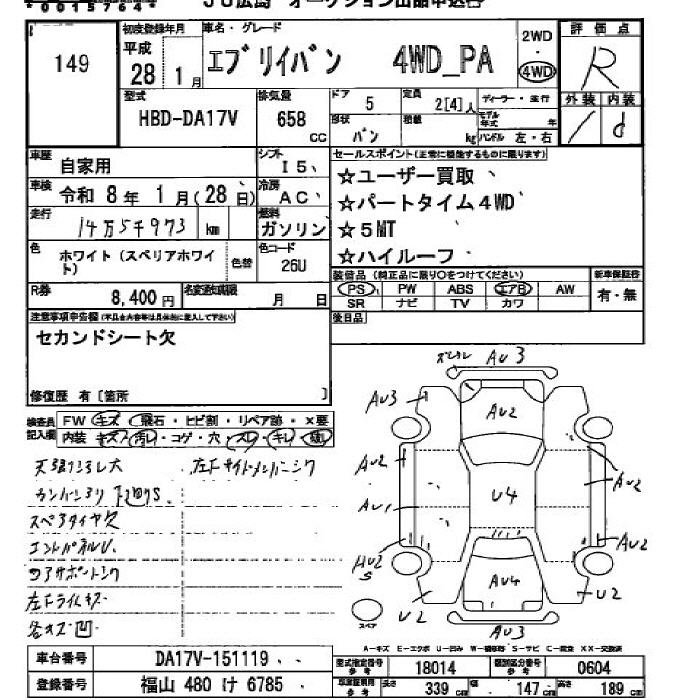 00157644
JU広島 オークション出品申込書
149
初度登録年月
平成 28年 1月
車名・グレード
エブリイバン 4WD_PA
2WD・4WD
評価点
R
型式
HBD-DA17V
排気量
658 CC
ドア 5
定員 2[4]人
ディーラー・並行
形状 バン
積載 kg
モデル年式 年
ハンドル 左・右
外装 内装
/ d
車歴 自家用
シフト I5
セールスポイント(正常に機能するものに限ります)
☆ユーザー買取
☆パートタイム4WD
☆5MT
☆ハイルーフ
車検 令和 8年 1月(28日)
冷房 AC
走行 14万5千973 km
燃料 ガソリン
色 ホワイト(スペリアホワイト)
色替
色コード 26U
装備品(純正品に限り○をつけてください)
新車保証書
PS PW ABS エアB AW
有・無
SR ナビ TV カワ
R券 8,400円
名変渡期限 月 日
後日品
注意事項申告欄(不具合内容等は具体的に記入して下さい)
セカンドシート欠
修復歴 有〔箇所 〕
検査員記入欄
FW キズ・飛石・ヒビ割・リペア跡・X要
内装 キズ・汚レ・コゲ・穴・スレ・キレ・
天張リヨゴレ大
左Fサイドメンバーシワ
スペアタイヤ欠
エンドパネルU.
コアサポートシワ
左Fライトキズ
各キズ凹
AU3
AU3
AU2
AU2
AU2
AU1
U4
AU2
AU2
S
AU4
U2
U2
AU3
スペア
A-キズ E-エクボ U-凹み W-補修跡 S-サビ C-腐食 XX-交換済
車台番号 DA17V-151119
登録番号 福山 480 け 6785
型式指定番号 参考 18014
類別区分番号 参考 0604
車輌重量 参考 長さ 339cm 幅 147cm 高さ 189cm